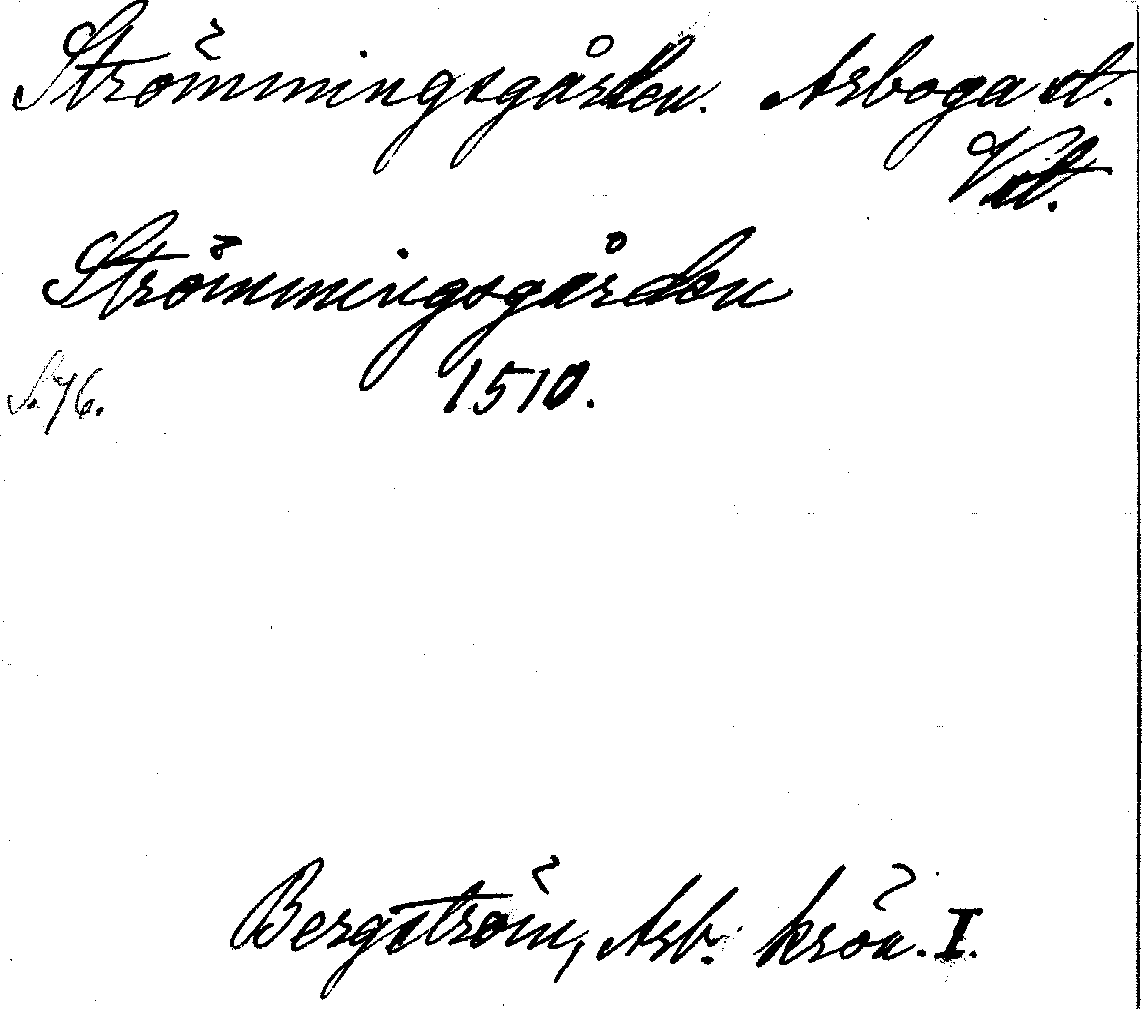 Strömmingsgården. Arboga st.
Vstl.
Strömmingsgården
S. 76. 1510.
Bergström, Arb. krön. I.